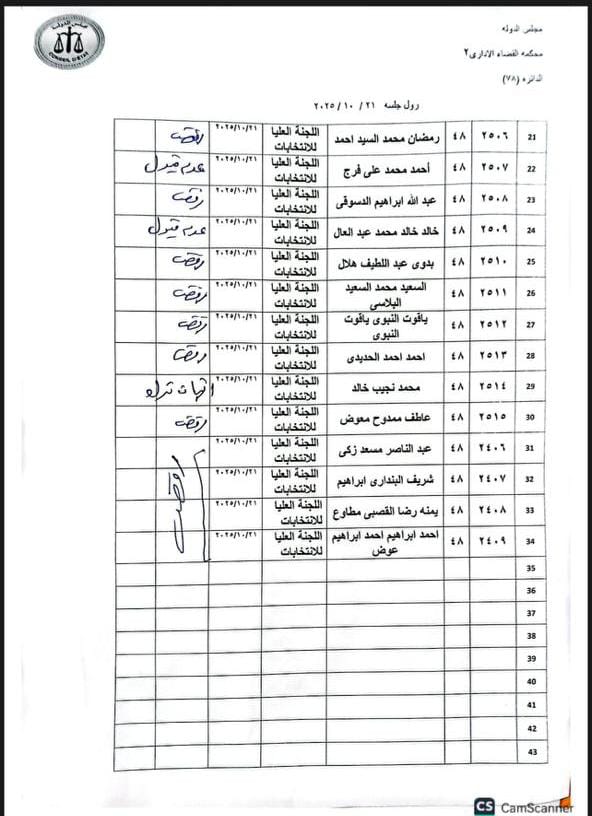 مجلس الدوله
محكمه القضاء الادارى ٢
الدائره (٧٨)
CONSEIL D'ETAT
رول جلسه ٢١/ ١٠ / ٢٠٢٥
21 ٢٥٠٦ ٤٨ رمضان محمد السيد احمد اللجنة العليا للانتخابات ٢٠٢٥/١٠/٢١ رفض
22 ٢٥٠٧ ٤٨ أحمد محمد على فرج اللجنة العليا للانتخابات ٢٠٢٥/١٠/٢١ عدم قبول
23 ٢٥٠٨ ٤٨ عبد الله ابراهيم الدسوقى اللجنة العليا للانتخابات ٢٠٢٥/١٠/٢١ رفض
24 ٢٥٠٩ ٤٨ خالد خالد محمد عبد العال اللجنة العليا للانتخابات ٢٠٢٥/١٠/٢١ عدم قبول
25 ٢٥١٠ ٤٨ بدوى عبد اللطيف هلال اللجنة العليا للانتخابات ٢٠٢٥/١٠/٢١ رفض
26 ٢٥١١ ٤٨ السعيد محمد السعيد البلاسى اللجنة العليا للانتخابات ٢٠٢٥/١٠/٢١ رفض
27 ٢٥١٢ ٤٨ ياقوت النبوى ياقوت النبوى اللجنة العليا للانتخابات ٢٠٢٥/١٠/٢١ رفض
28 ٢٥١٣ ٤٨ احمد احمد الحديدى اللجنة العليا للانتخابات ٢٠٢٥/١٠/٢١ رفض
29 ٢٥١٤ ٤٨ محمد نجيب خالد اللجنة العليا للانتخابات ٢٠٢٥/١٠/٢١ اثبات ترك
30 ٢٥١٥ ٤٨ عاطف ممدوح معوض اللجنة العليا للانتخابات ٢٠٢٥/١٠/٢١ رفض
31 ٢٤٠٦ ٤٨ عبد الناصر مسعد زكى اللجنة العليا للانتخابات ٢٠٢٥/١٠/٢١ رفض
32 ٢٤٠٧ ٤٨ شريف البندارى ابراهيم اللجنة العليا للانتخابات ٢٠٢٥/١٠/٢١
33 ٢٤٠٨ ٤٨ يمنه رضا القصبى مطاوع اللجنة العليا للانتخابات ٢٠٢٥/١٠/٢١
34 ٢٤٠٩ ٤٨ احمد ابراهيم احمد ابراهيم عوض اللجنة العليا للانتخابات ٢٠٢٥/١٠/٢١
35
36
37
38
39
40
41
42
43
CS CamScanner